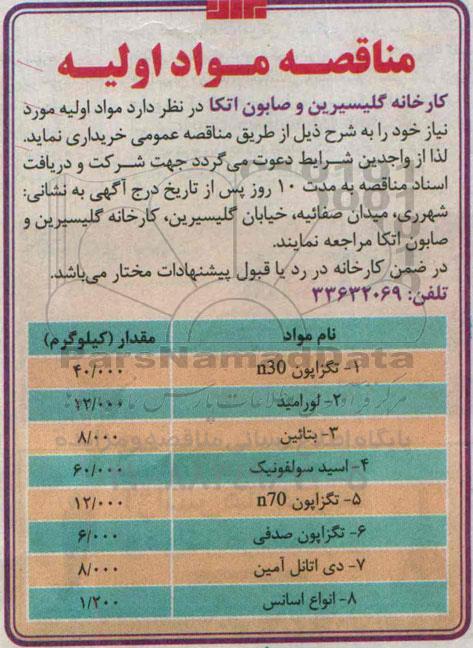 مناقصه مواد اولیه
کارخانه گلیسیرین و صابون اتکا در نظر دارد مواد اولیه مورد
نیاز خود را به شرح ذیل از طریق مناقصه عمومی خریداری نماید.
لذا از واجدین شرایط دعوت می‌گردد جهت شرکت و دریافت
اسناد مناقصه به مدت ۱۰ روز پس از تاریخ درج آگهی به نشانی:
شهرری، میدان صفائیه، خیابان گلیسیرین، کارخانه گلیسیرین و
صابون اتکا مراجعه نمایند.
در ضمن کارخانه در رد یا قبول پیشنهادات مختار می‌باشد.
تلفن: ۳۳۶۳۲۰۶۹
نام مواد مقدار (کیلوگرم)
۱- تگزاپون n30 ۴۰/۰۰۰
۲- لورامید ۱۲/۰۰۰
۳- بتائین ۸/۰۰۰
۴- اسید سولفونیک ۶۰/۰۰۰
۵- تگزاپون n70 ۱۲/۰۰۰
۶- تگزاپون صدفی ۶/۰۰۰
۷- دی اتانل آمین ۸/۰۰۰
۸- انواع اسانس ۱/۲۰۰
ParsNamadData